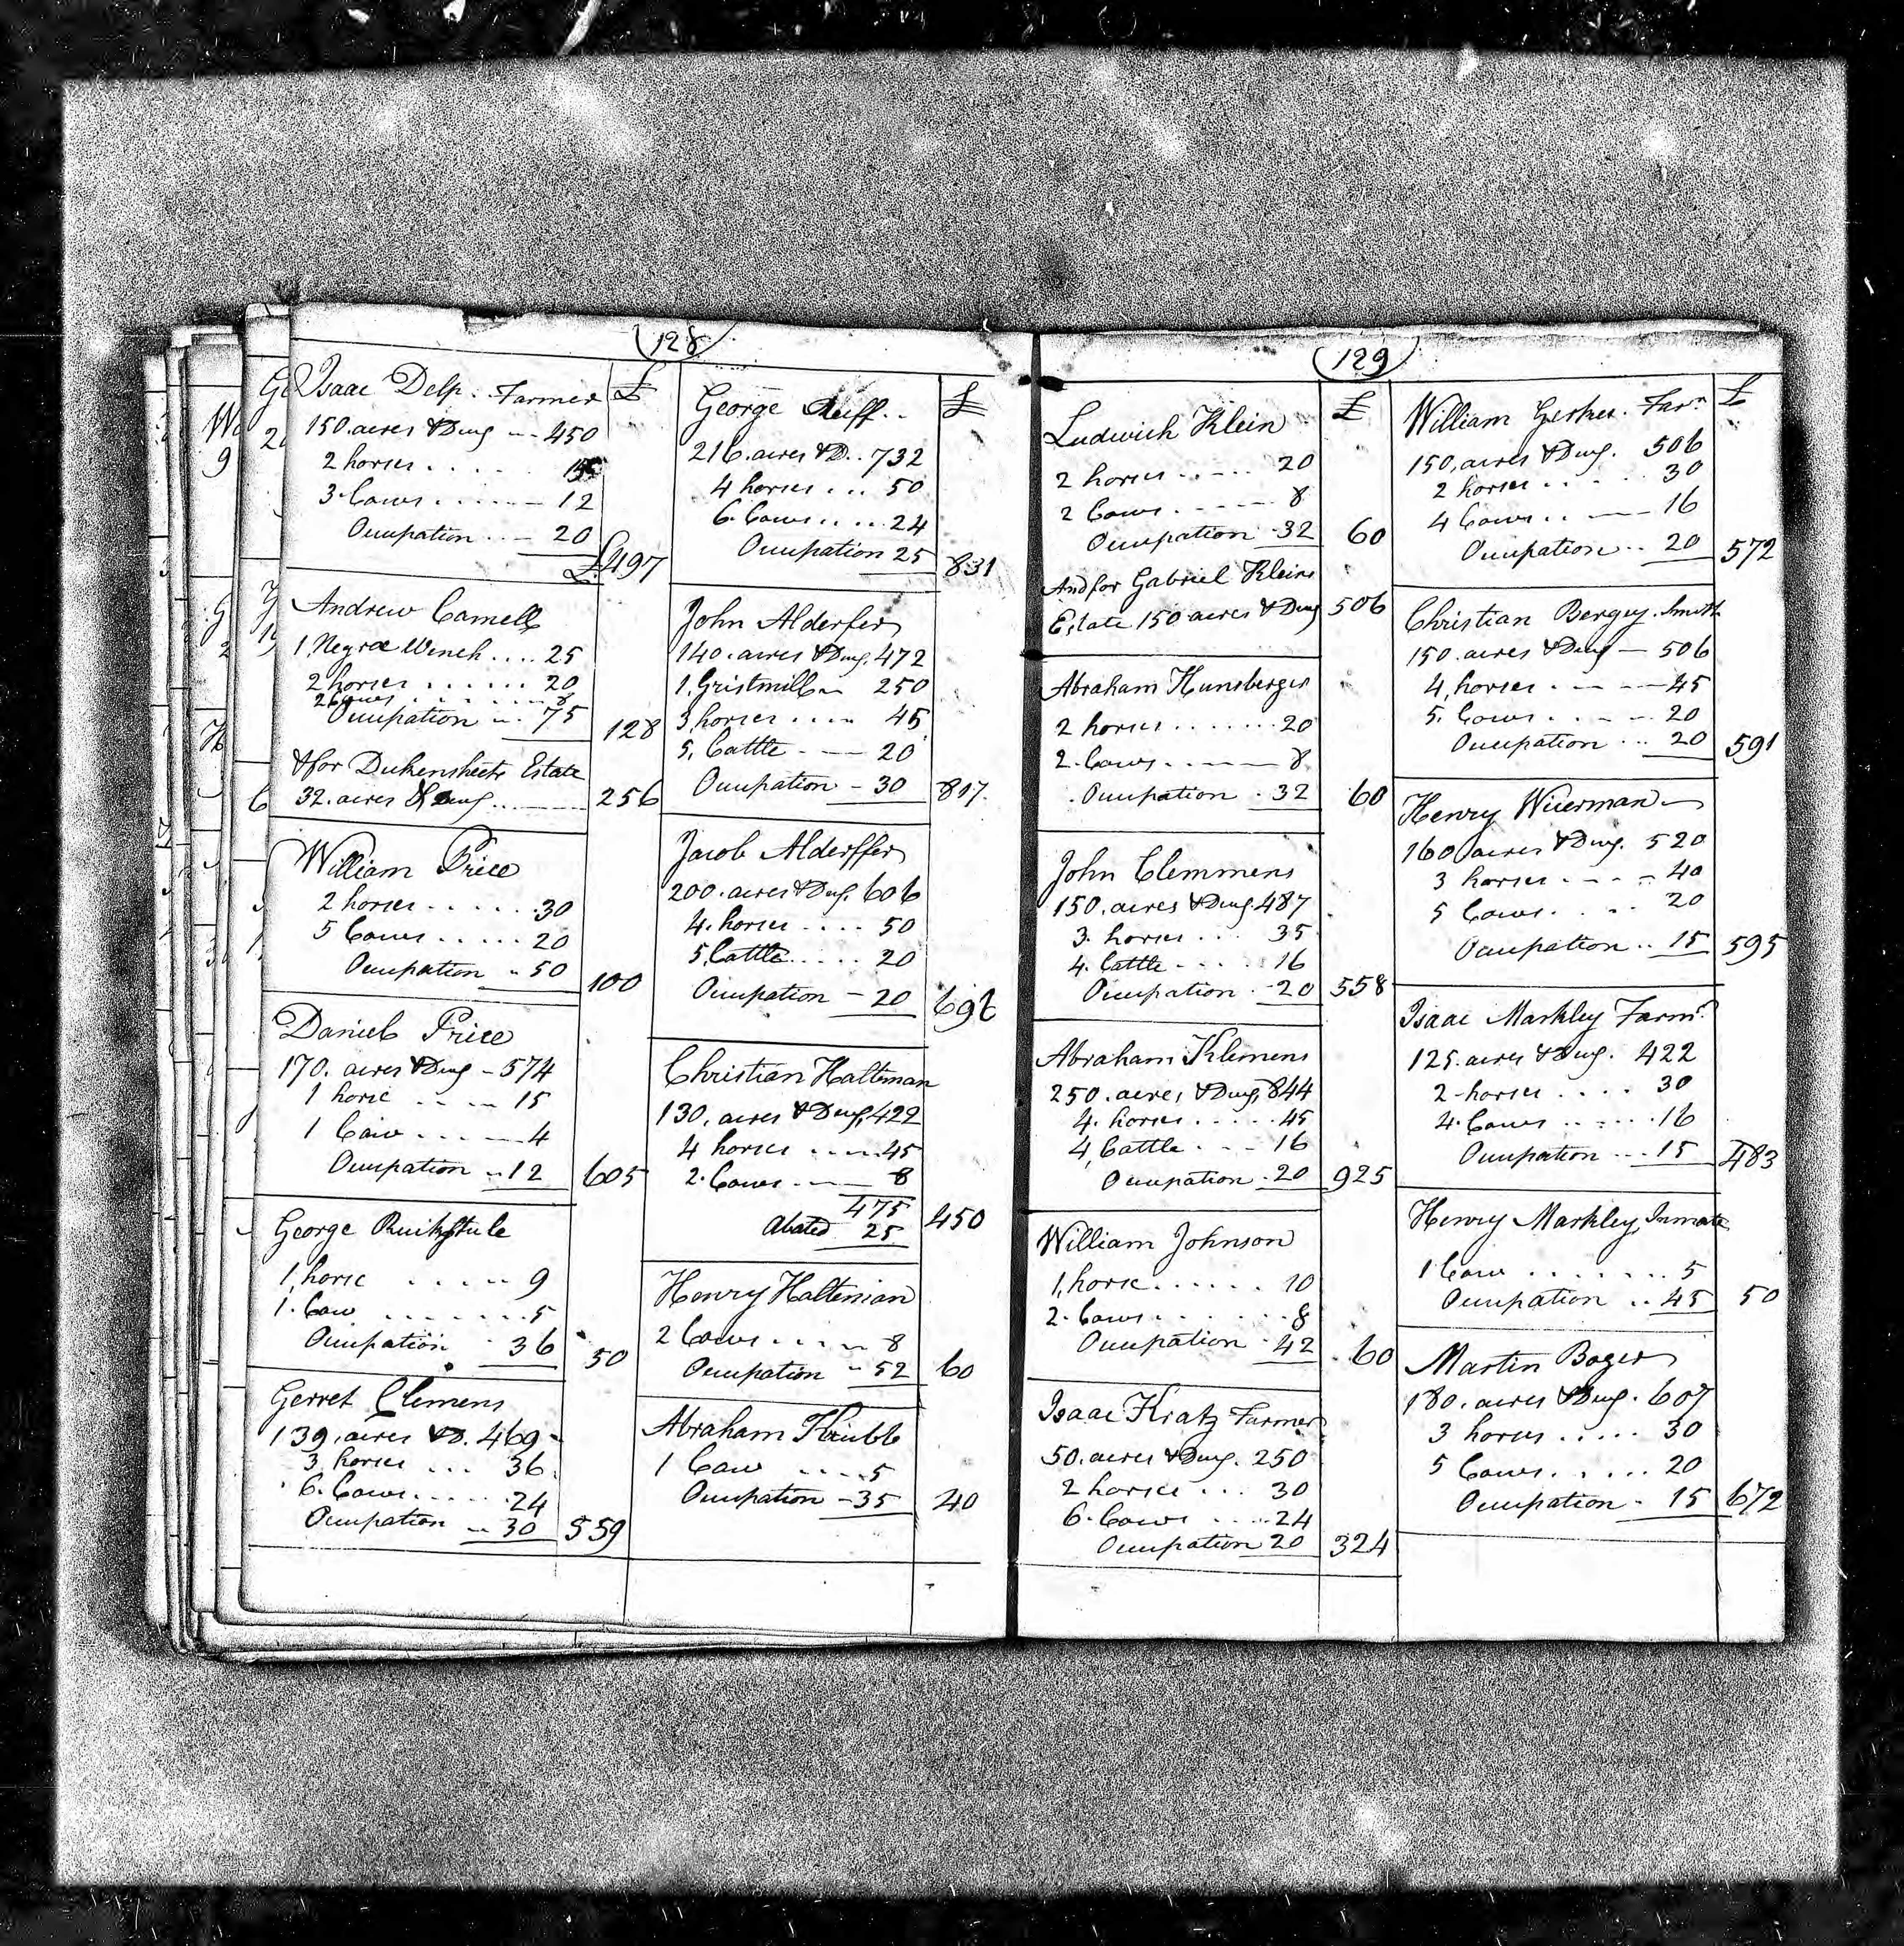 (128)
Isaac Delp. Farmer £
150. acres & Dwg 450
2 horses 15
3. Cows 12
Occupation 20
£497
Andrew Camell
1, Negroe Wench 25
2 horses 20
2 Cows 8
Occupation 75
128
& for Dukensheets Estate
32. acres & Dwg 256
William Price
2 horses 30
5 Cows 20
Occupation 50
100
Daniel Price
170. acres & Dwg 574
1 horse 15
1 Cow 4
Occupation 12 605
George
1, horse 9
1. Cow 5
Occupation 36
50
Gerret Clemens
139. acres & D. 469
3 horses 36
6. Cows 24
Occupation 30 559
George Ruff £
216. acres & D. 732
4 horses 50
6. Cows 24
Occupation 25 831
John Alderfer
140. acres & Dwg. 472
1, Gristmill 250
3, horses 45
5, Cattle 20
Occupation 30 817.
Jacob Alderffer
200. acres & Dwg. 606
4. horses 50
5, Cattle 20
Occupation 20 696
Christian Halteman
130, acres & Dwg. 422
4 horses 45
2. Cows 8
475
Abated 25 450
Henry Halteman
2 Cows 8
Occupation 52 60
Abraham
1 Cow 5
Occupation 35 40
(129)
Ludwick Klein £
2 horses 20
2 Cows 8
Occupation 32 60
And for Gabriel Kleins
Estate 150 acres & Dwg 506
Abraham Hunsberger
2 horses 20
2. Cows 8
Occupation 32 60
John Clemmens
150. acres & Dwg. 487
3. horses 35
4. Cattle 16
Occupation 20 558
Abraham Klemens
250. acres & Dwg. 844
4. horses 45
4, Cattle 16
Occupation 20 925
William Johnson
1, horse 10
2. Cows 8
Occupation 42 60
Isaac Kratz Farmer
50. acres & Dwg. 250
2 horses 30
6. Cows 24
Occupation 20 324
William Farr £
150, acres & Dwg. 506
2 horses 30
4 Cows 16
Occupation 20 572
Christian Bergey. Smith
150. acres & Dwg 506
4, horses 45
5. Cows 20
Occupation 20 591
Henry
160 acres & Dwg. 520
3 horses 40
5 Cows 20
Occupation 15 595
Isaac Markley Farmr
125. acres & Dwg. 422
2 horses 30
4. Cows 16
Occupation 15 483
Henry Markley, Inmate
1 Cow 5
Occupation 45 50
Martin Boger
180. acres & Dwg. 607
3 horses 30
5 Cows 20
Occupation 15 672